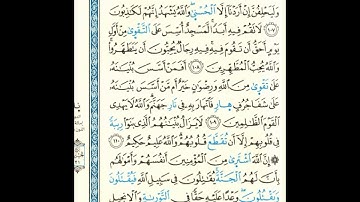 وَلَيَحْلِفُنَّ إِنْ أَرَدْنَا إِلَّا الْحُسْنَىٰ وَاللَّهُ يَشْهَدُ إِنَّهُمْ لَكَٰذِبُونَ
١٠٧ لَا تَقُمْ فِيهِ أَبَدًا لَّمَسْجِدٌ أُسِّسَ عَلَى التَّقْوَىٰ مِنْ أَوَّلِ
يَوْمٍ أَحَقُّ أَن تَقُومَ فِيهِ فِيهِ رِجَالٌ يُحِبُّونَ أَن يَتَطَهَّرُوا
وَاللَّهُ يُحِبُّ الْمُطَّهِّرِينَ ١٠٨ أَفَمَنْ أَسَّسَ بُنْيَٰنَهُ
عَلَىٰ تَقْوَىٰ مِنَ اللَّهِ وَرِضْوَٰنٍ خَيْرٌ أَم مَّنْ أَسَّسَ بُنْيَٰنَهُ
عَلَىٰ شَفَا جُرُفٍ هَارٍ فَانْهَارَ بِهِ فِي نَارِ جَهَنَّمَ وَاللَّهُ لَا يَهْدِي
الْقَوْمَ الظَّٰلِمِينَ ١٠٩ لَا يَزَالُ بُنْيَٰنُهُمُ الَّذِي بَنَوْا رِيبَةً
فِي قُلُوبِهِمْ إِلَّا أَن تَقَطَّعَ قُلُوبُهُمْ وَاللَّهُ عَلِيمٌ حَكِيمٌ ١١٠
إِنَّ اللَّهَ اشْتَرَىٰ مِنَ الْمُؤْمِنِينَ أَنفُسَهُمْ وَأَمْوَٰلَهُم
بِأَنَّ لَهُمُ الْجَنَّةَ يُقَٰتِلُونَ فِي سَبِيلِ اللَّهِ فَيَقْتُلُونَ
وَيُقْتَلُونَ وَعْدًا عَلَيْهِ حَقًّا فِي التَّوْرَىٰةِ وَالْإِنجِيلِ